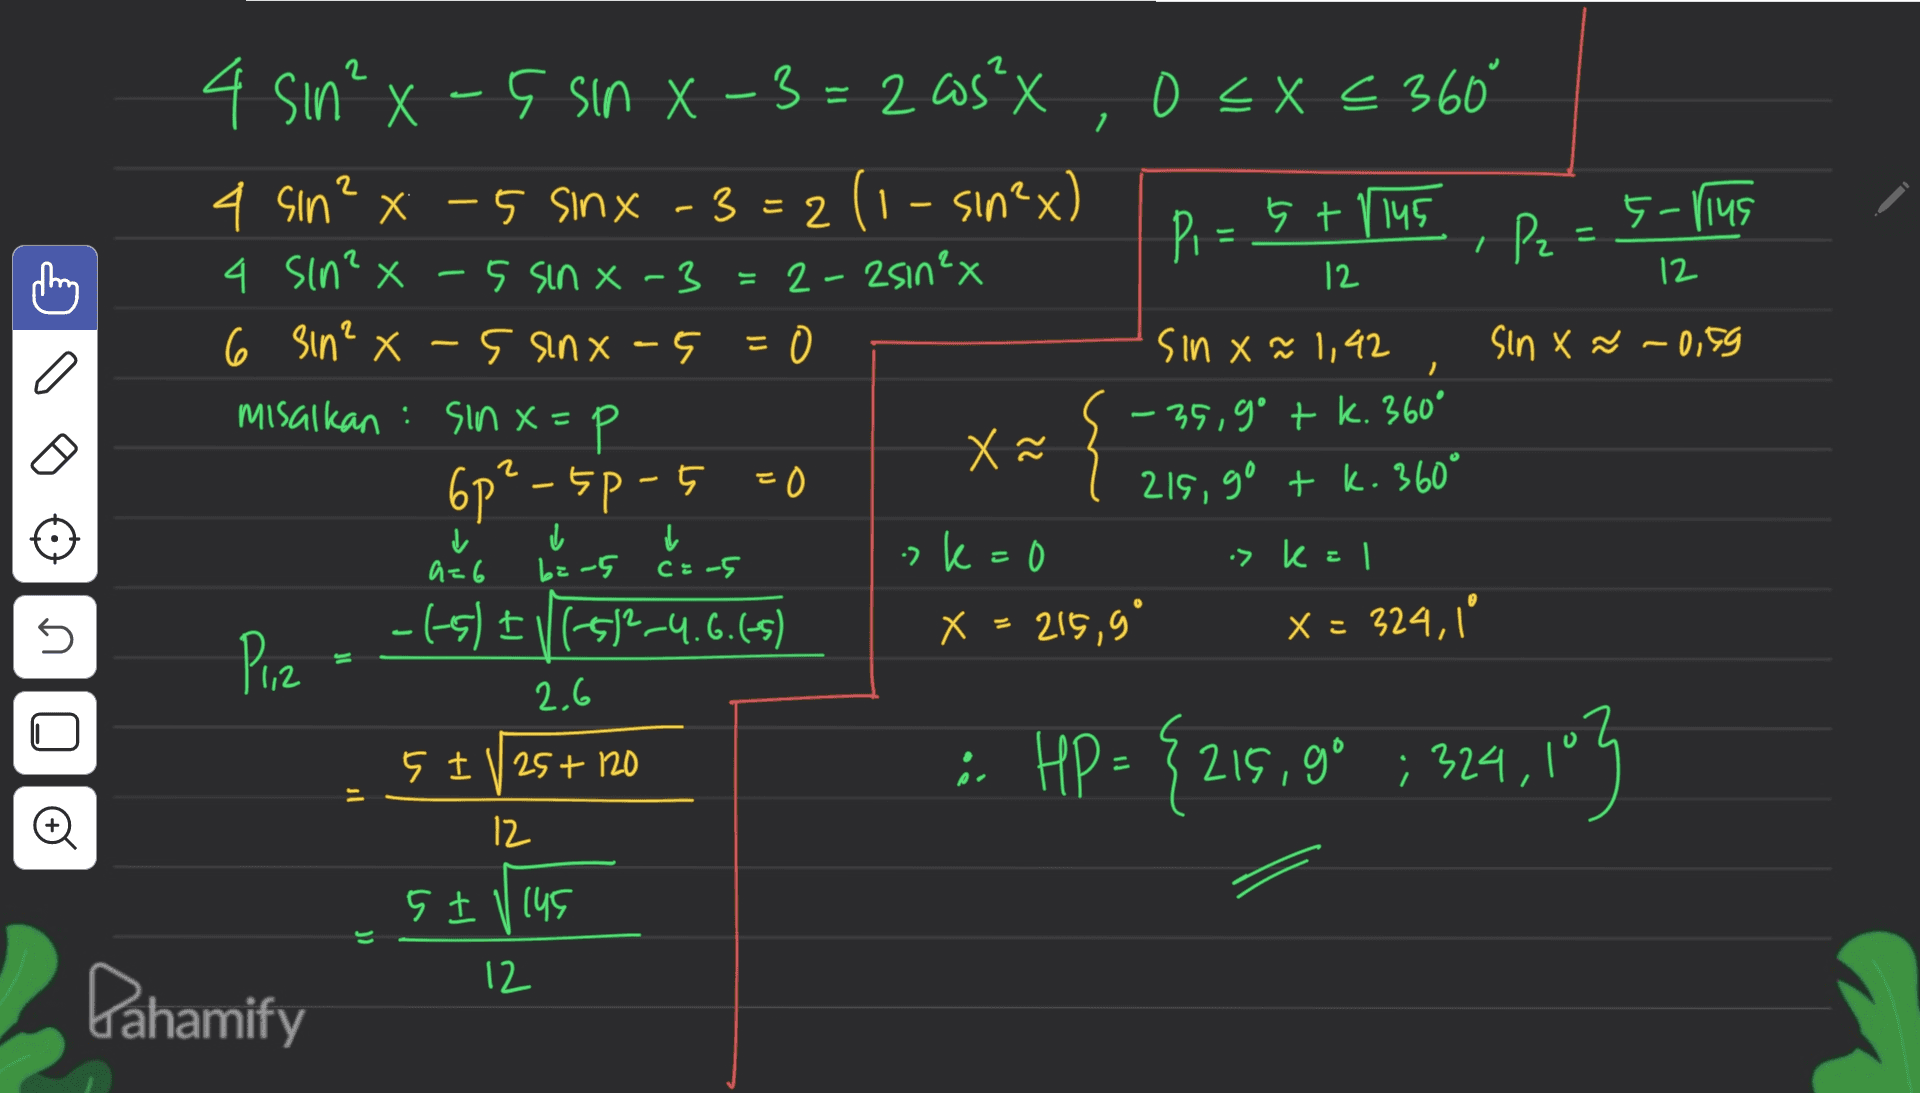 4 sin² x - 5 sin x - 3 = 2 cos² x , 0 ≤ x ≤ 360°
4 sin² x - 5 sin x - 3 = 2 (1 - sin² x)
4 sin² x - 5 sin x - 3 = 2 - 2 sin² x
6 sin² x - 5 sin x - 5 = 0
misalkan : sin x = p
6p² - 5p - 5 = 0
↓ ↓ ↓
a = 6 b = -5 c = -5
P₁,₂ = (-(-5) ± √((-5)² - 4.6.(-5))) / 2.6
= (5 ± √(25 + 120)) / 12
= (5 ± √145) / 12
P₁ = (5 + √145) / 12 , P₂ = (5 - √145) / 12
sin x ≈ 1,42 , sin x ≈ -0,59
x ≈ { -35,9° + k. 360°
215,9° + k. 360°
·> k = 0 ·> k = 1
x = 215,9° x = 324,1°
∴ HP = {215,9° ; 324,1°}
Pahamify